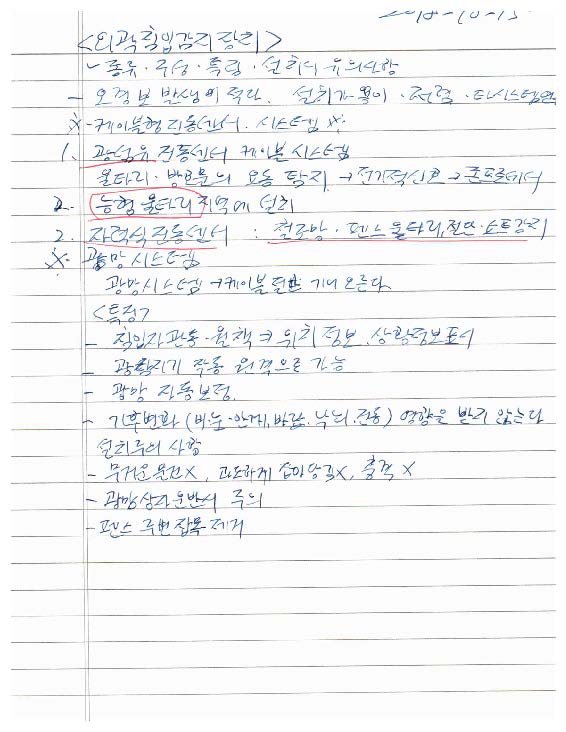 2018-10-15
<외곽침입감지장치>
- 종류·구성·특징·설치시 유의사항
- 오경보 발생이 적다. 설치가 용이·저렴·타시스템
※-케이블형진동센서. 시스템 ※.
1. 광섬유 진동센서 케이블시스템
울타리· 의 요동 탐지 → 전기적신호 →
2. 능형울타리지역에 설치
2. 자력식진동센서 : 철조망·펜스울타리, 절단·쇼트감지
※- 광망시스템
광망시스템 → 케이블절단 기어오른다
<특징>
- 침입자 관통·월책 위치정보, 상황정보표시
- 작동 원격으로 가능
- 광망 자동보정.
- 기후변화 (비·눈·안개, 바람. 낙뢰. 진동) 영향을 받지 않는다
설치주의 사항
- 무거운물건X, 과도하게 잡아당김X, 충격 X
- 광망상자운반시 주의
- 펜스 주변잡목제거